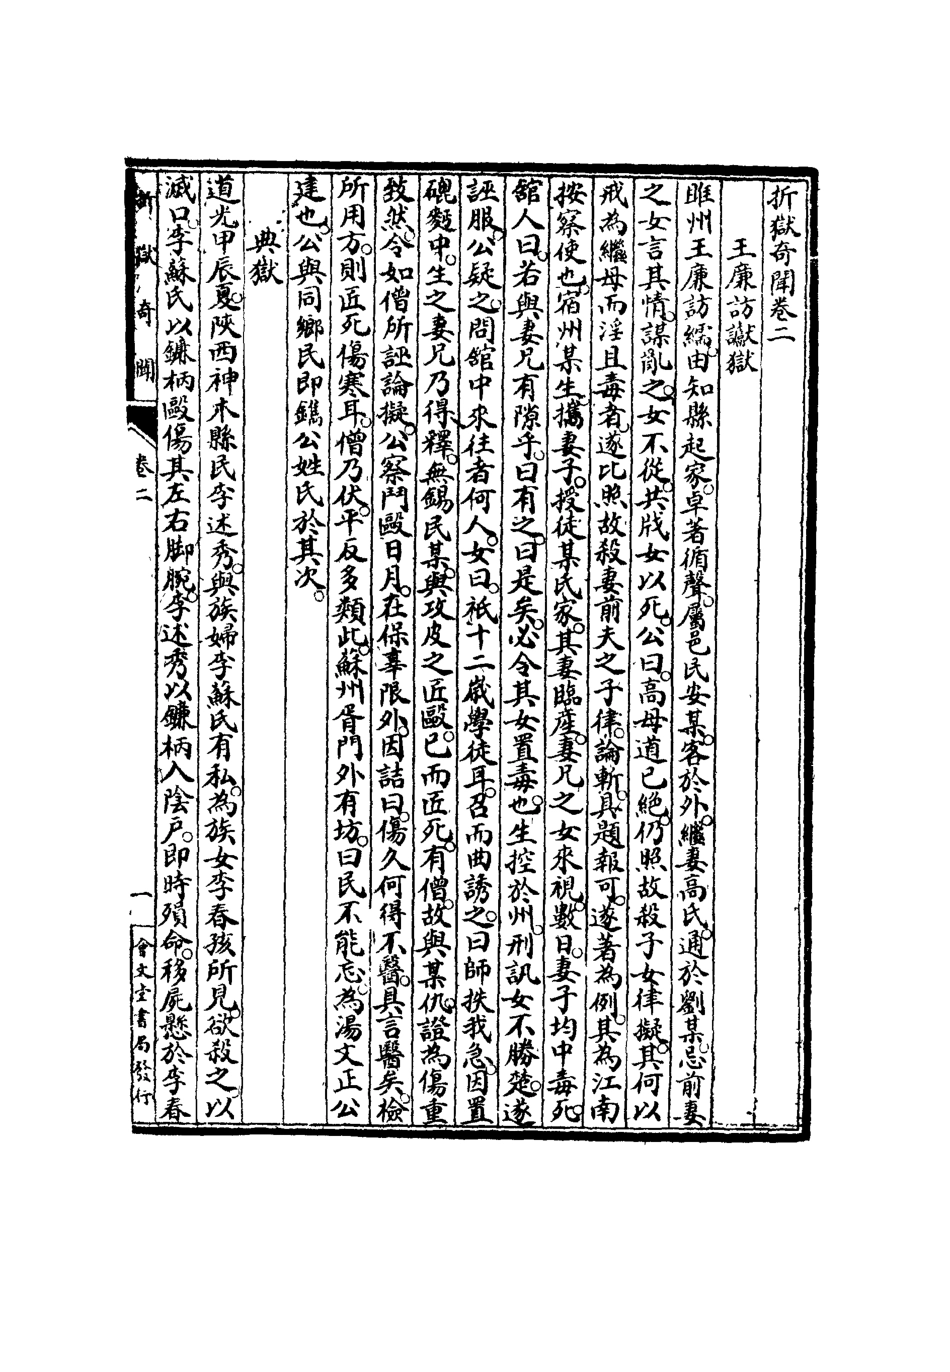 折獄奇聞卷二
王廉訪讞獄
睢州王廉訪繻。由知縣起家。卓著循聲。屬邑民安某。客於外。繼妻高氏。通於劉某。忌前妻
之女言其情。謀亂之。女不從。共戕女以死。公曰。高母道已絕。仍照故殺子女律擬。其何以
戒為繼母而淫且毒者。遂比照故殺妻前夫之子律。論斬。具題報可。遂著為例。其為江南
按察使也。宿州某生。攜妻子。授徒某氏家。其妻臨產。妻兄之女來視。數日。妻子均中毒死。
館人曰。若與妻兄有隙乎。曰有之。曰是矣。必令其女置毒也。生控於州。刑訊女不勝楚。遂
誣服。公疑之。問館中來往者何人。女曰。祇十二歲學徒耳。召而曲誘之。曰師扶我急。因置
磇麪中。生之妻兄乃得釋。無錫民某。與攻皮之匠毆。已而匠死。有僧。故與某仇。證為傷重
致然。令如僧所誣論擬。公察鬥毆日月。在保辜限外。因詰曰。傷久何得不醫。具言醫矣。檢
所用方。則匠死傷寒耳。僧乃伏。平反多類此。蘇州胥門外有坊。曰民不能忘。為湯文正公
建也。公與同鄉民即鐫公姓氏於其次。
典獄
道光甲辰夏。陝西神木縣民李述秀。與族婦李蘇氏有私。為族女李春孩所見。欲殺之。以
滅口。李蘇氏以鐮柄毆傷其左右脚腕。李述秀以鐮柄入陰戶。即時殞命。移屍懸於李春
折獄奇聞
卷二
一
會文堂書局發行